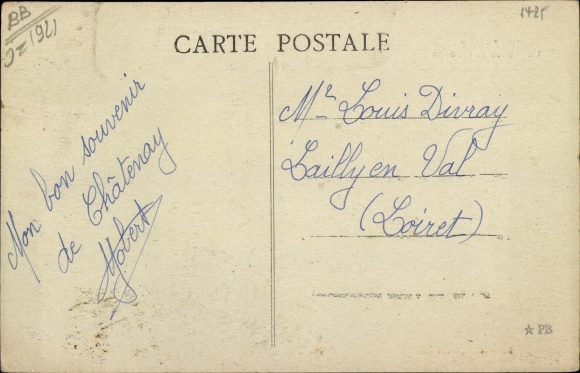 BB
1425
CARTE POSTALE
Mon bon souvenir
de Châtenay
Mr Louis Divray
Lailly en Val
(Loiret)
☆ PB